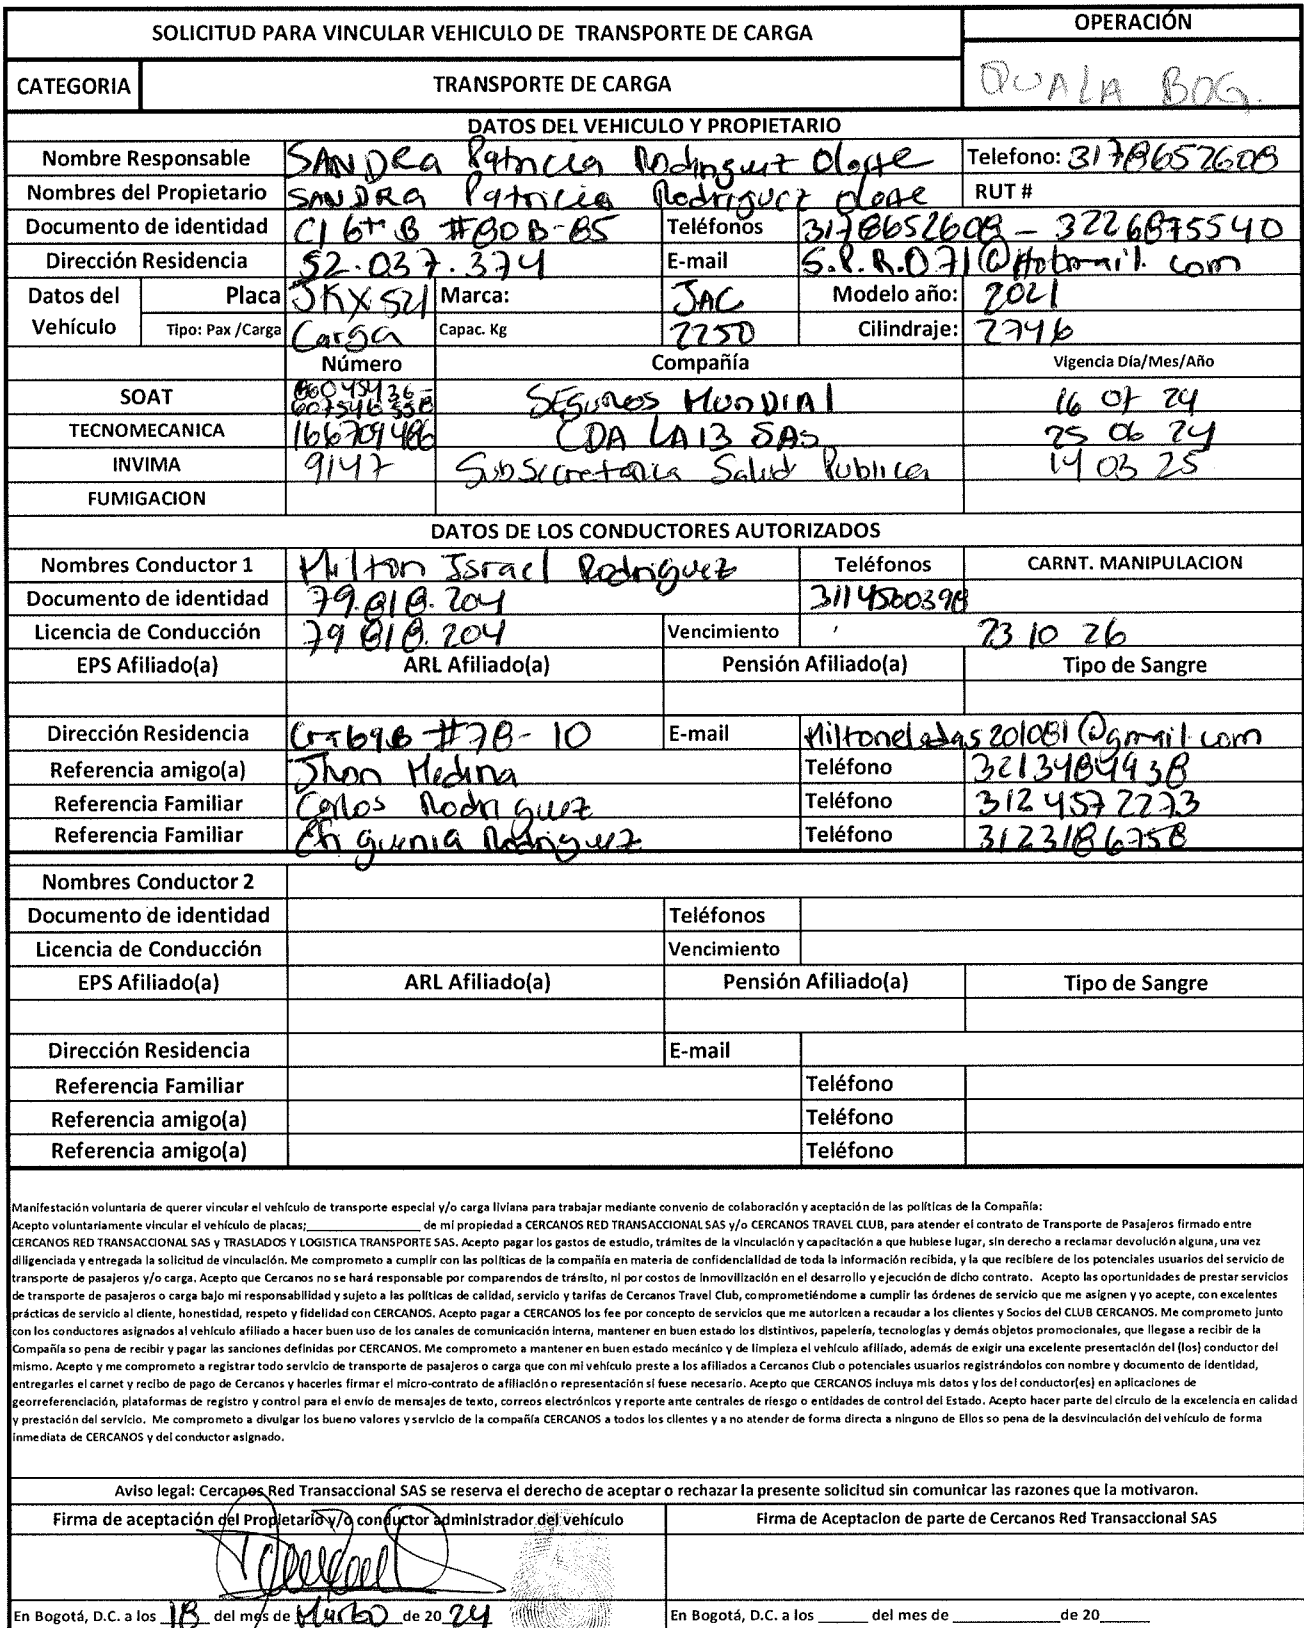 SOLICITUD PARA VINCULAR VEHICULO DE TRANSPORTE DE CARGA
OPERACIÓN
CATEGORIA TRANSPORTE DE CARGA
QUALA BOG.
DATOS DEL VEHICULO Y PROPIETARIO
Nombre Responsable SANDRA Patricia Rodriguez Olarte Telefono: 3178652608
Nombres del Propietario SANDRA Patricia Rodriguez olarte RUT #
Documento de identidad Cl 6ta B #80B-85 Teléfonos 3178652608 - 3226875540
Dirección Residencia 52.037.374 E-mail S.P.R.O71@Hotmail.com
Datos del Vehículo Placa JKX521 Marca: JAC Modelo año: 2021
Tipo: Pax /Carga Carga Capac. Kg 2250 Cilindraje: 2746
Número Compañía Vigencia Día/Mes/Año
SOAT SEGUROS MUNDIAL 16 07 24
TECNOMECANICA 166709486 CDA LA 13 SAS 25 06 24
INVIMA 9147 Subsecretaria Salud Publica 14 03 25
FUMIGACION
DATOS DE LOS CONDUCTORES AUTORIZADOS
Nombres Conductor 1 Milton Israel Rodriguez Teléfonos CARNT. MANIPULACION
Documento de identidad 79.818.204 3114500398
Licencia de Conducción 79 818.204 Vencimiento 23 10 26
EPS Afiliado(a) ARL Afiliado(a) Pensión Afiliado(a) Tipo de Sangre
Dirección Residencia Cra69B #78-10 E-mail Miltoneladas201081@gmail.com
Referencia amigo(a) Jhon Medina Teléfono 3213484938
Referencia Familiar Carlos Rodriguez Teléfono 3124572273
Referencia Familiar Rodriguez Teléfono 3123186758
Nombres Conductor 2
Documento de identidad Teléfonos
Licencia de Conducción Vencimiento
EPS Afiliado(a) ARL Afiliado(a) Pensión Afiliado(a) Tipo de Sangre
Dirección Residencia E-mail
Referencia Familiar Teléfono
Referencia amigo(a) Teléfono
Referencia amigo(a) Teléfono
Manifestación voluntaria de querer vincular el vehículo de transporte especial y/o carga liviana para trabajar mediante convenio de colaboración y aceptación de las políticas de la Compañía:
Acepto voluntariamente vincular el vehículo de placas;____________________ de mi propiedad a CERCANOS RED TRANSACCIONAL SAS y/o CERCANOS TRAVEL CLUB, para atender el contrato de Transporte de Pasajeros firmado entre
CERCANOS RED TRANSACCIONAL SAS y TRASLADOS Y LOGISTICA TRANSPORTE SAS. Acepto pagar los gastos de estudio, trámites de la vinculación y capacitación a que hubiese lugar, sin derecho a reclamar devolución alguna, una vez
diligenciada y entregada la solicitud de vinculación. Me comprometo a cumplir con las políticas de la compañía en materia de confidencialidad de toda la información recibida, y la que recibiere de los potenciales usuarios del servicio de
transporte de pasajeros y/o carga. Acepto que Cercanos no se hará responsable por comparendos de tránsito, ni por costos de Inmovilización en el desarrollo y ejecución de dicho contrato. Acepto las oportunidades de prestar servicios
de transporte de pasajeros o carga bajo mi responsabilidad y sujeto a las políticas de calidad, servicio y tarifas de Cercanos Travel Club, comprometiéndome a cumplir las órdenes de servicio que me asignen y yo acepte, con excelentes
prácticas de servicio al cliente, honestidad, respeto y fidelidad con CERCANOS. Acepto pagar a CERCANOS los fee por concepto de servicios que me autoricen a recaudar a los clientes y Socios del CLUB CERCANOS. Me comprometo junto
con los conductores asignados al vehículo afiliado a hacer buen uso de los canales de comunicación interna, mantener en buen estado los distintivos, papelería, tecnologías y demás objetos promocionales, que llegase a recibir de la
Compañía so pena de recibir y pagar las sanciones definidas por CERCANOS. Me comprometo a mantener en buen estado mecánico y de limpieza el vehículo afiliado, además de exigir una excelente presentación del (los) conductor del
mismo. Acepto y me comprometo a registrar todo servicio de transporte de pasajeros o carga que con mi vehículo preste a los afiliados a Cercanos Club o potenciales usuarios registrándolos con nombre y documento de identidad,
entregarles el carnet y recibo de pago de Cercanos y hacerles firmar el micro-contrato de afiliación o representación si fuese necesario. Acepto que CERCANOS incluya mis datos y los del conductor(es) en aplicaciones de
georreferenciación, plataformas de registro y control para el envío de mensajes de texto, correos electrónicos y reporte ante centrales de riesgo o entidades de control del Estado. Acepto hacer parte del circulo de la excelencia en calidad
y prestación del servicio. Me comprometo a divulgar los bueno valores y servicio de la compañía CERCANOS a todos los clientes y a no atender de forma directa a ninguno de Ellos so pena de la desvinculación del vehículo de forma
inmediata de CERCANOS y del conductor asignado.
Aviso legal: Cercanos Red Transaccional SAS se reserva el derecho de aceptar o rechazar la presente solicitud sin comunicar las razones que la motivaron.
Firma de aceptación del Propietario y/o conductor administrador del vehículo Firma de Aceptacion de parte de Cercanos Red Transaccional SAS
En Bogotá, D.C. a los 18 del mes de Marzo de 20 24 En Bogotá, D.C. a los ______ del mes de ____________de 20______